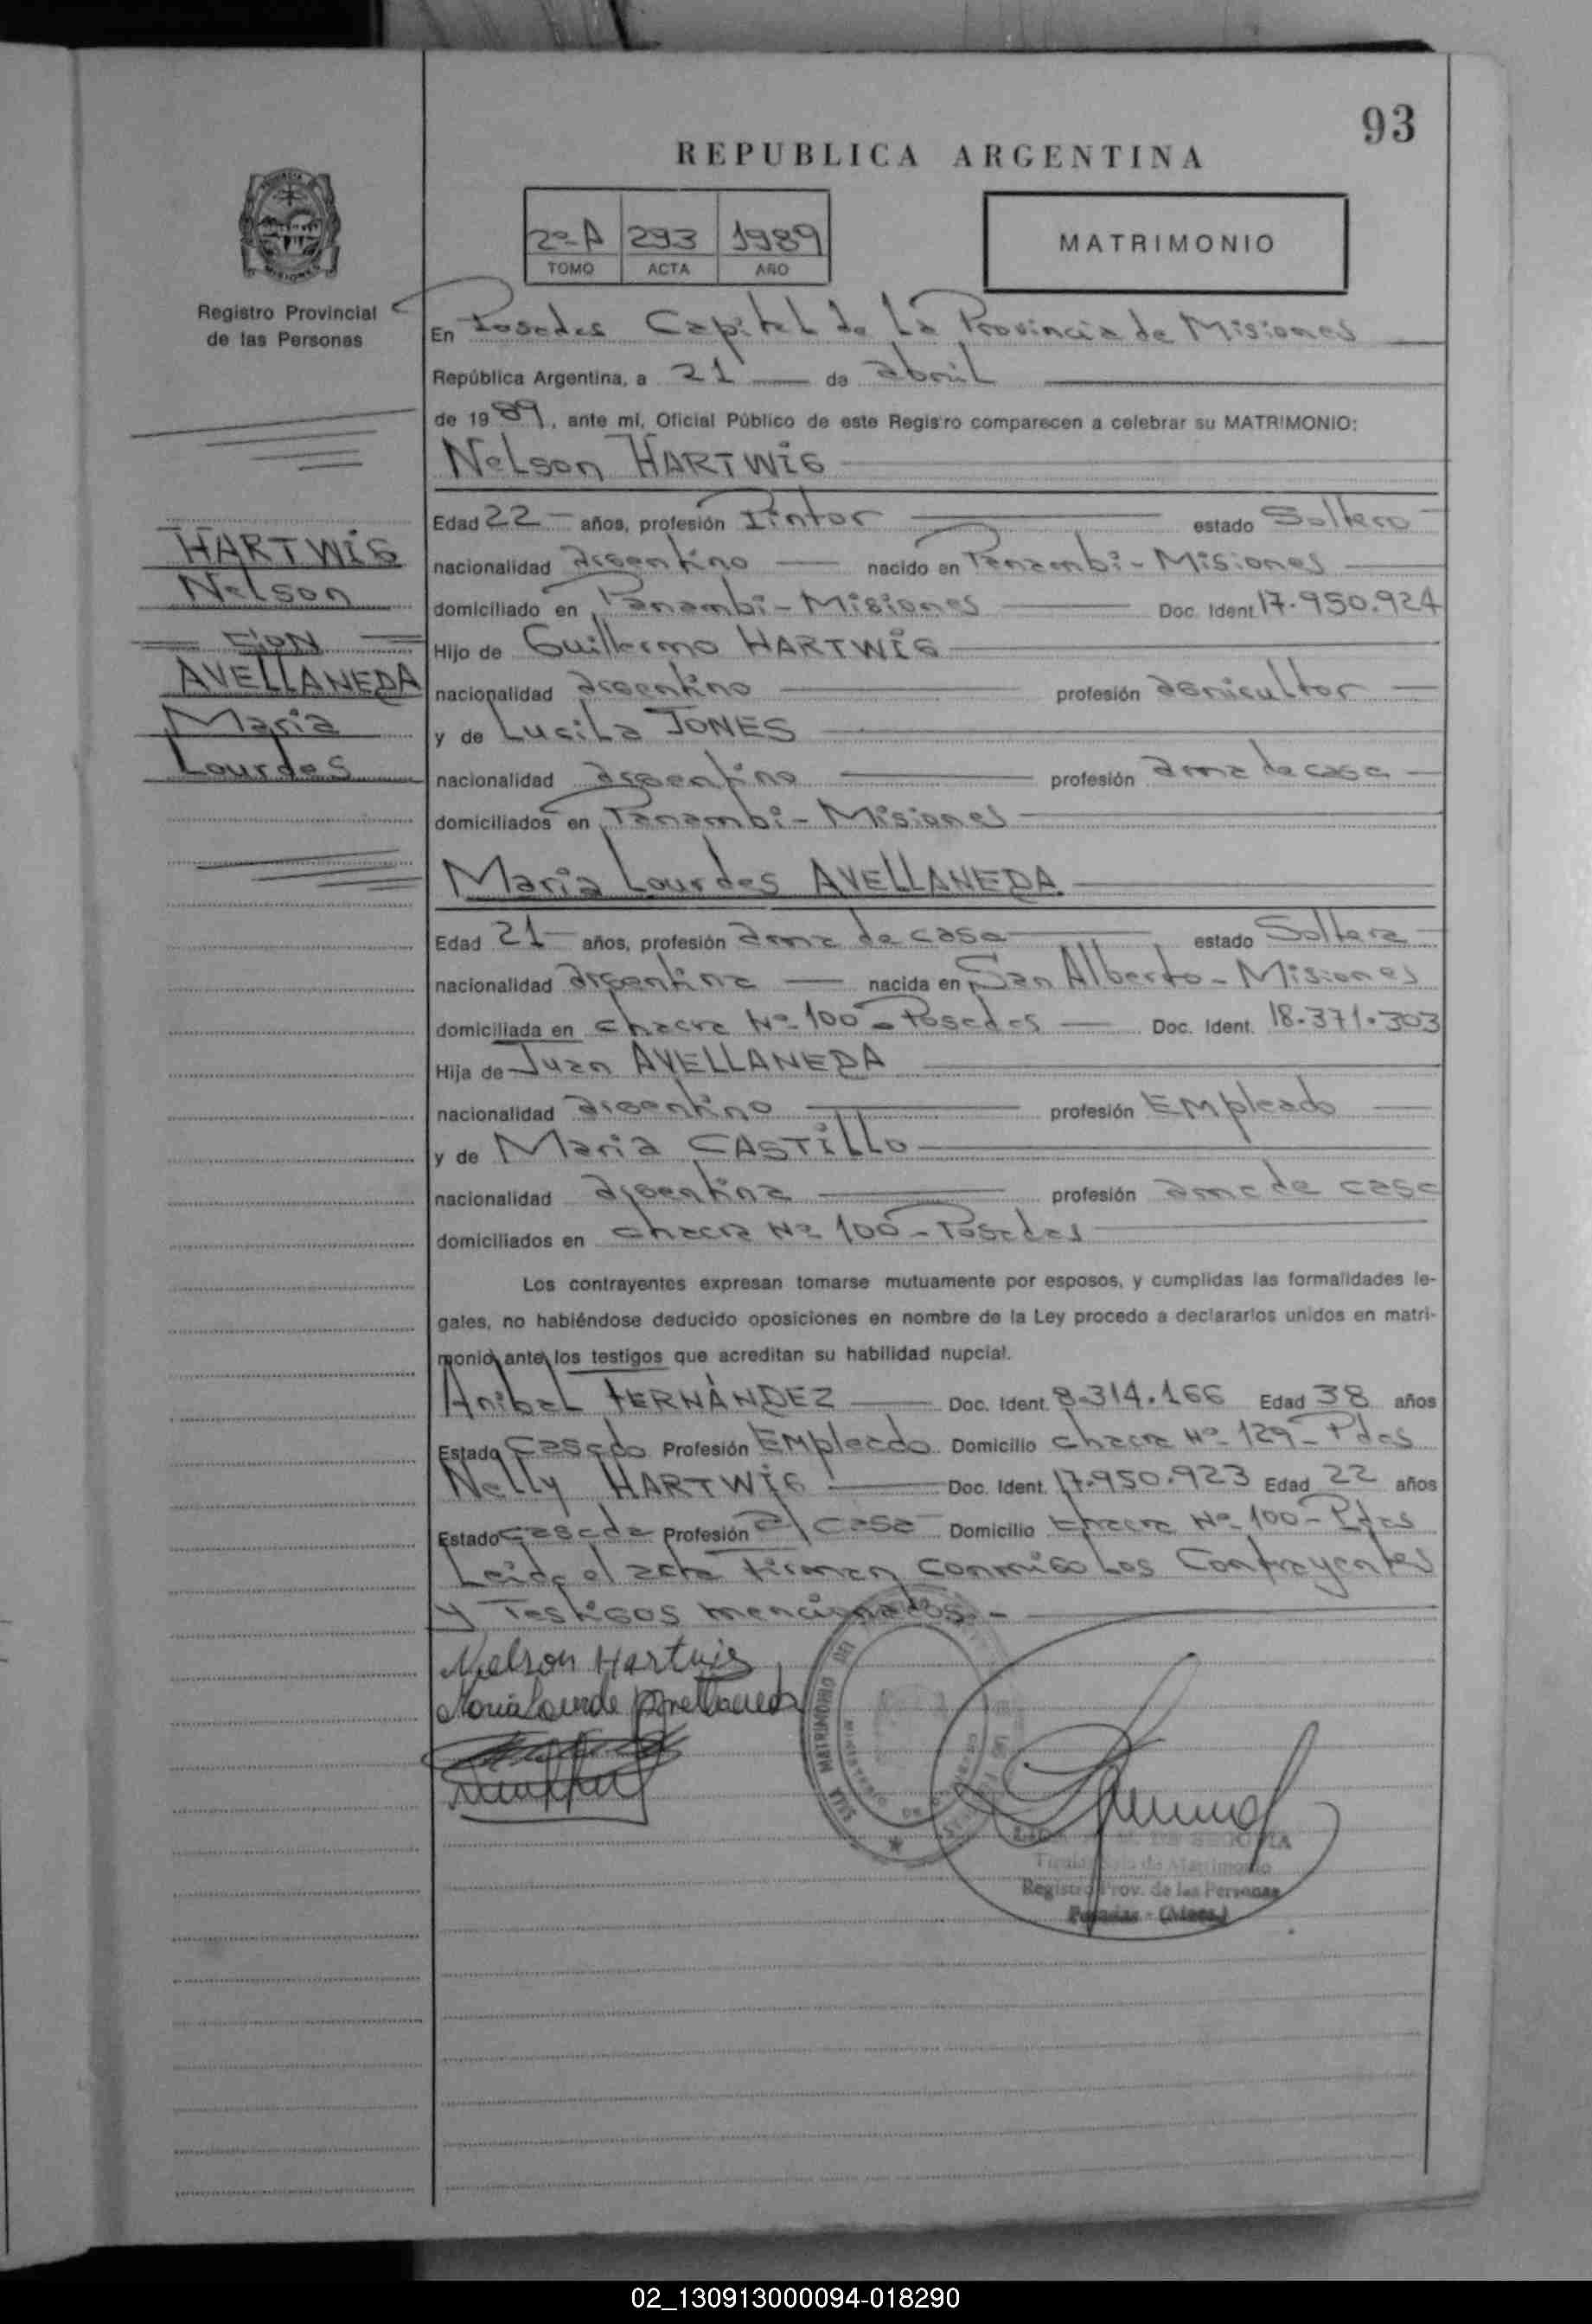 93
REPUBLICA ARGENTINA
2º-A 293 1989
TOMO ACTA AÑO
MATRIMONIO
Registro Provincial
de las Personas
HARTWIG
Nelson
CON
AVELLANEDA
Maria
Lourdes
En Posadas Capital de La Provincia de Misiones
República Argentina, a 21 de abril
de 1989, ante mi, Oficial Público de este Registro comparecen a celebrar su MATRIMONIO:
Nelson HARTWIG
Edad 22 años, profesión Pintor estado Soltero
nacionalidad argentino nacido en Panambi - Misiones
domiciliado en Panambi - Misiones Doc. Ident 17.950.924
Hijo de Guillermo HARTWIG
nacionalidad argentino profesión agricultor
y de Lucila JONES
nacionalidad argentina profesión ama de casa
domiciliados en Panambi - Misiones
Maria Lourdes AVELLANEDA
Edad 21 años, profesión ama de casa estado Soltera
nacionalidad argentina nacida en San Alberto - Misiones
domiciliada en chacra Nº 100 - Posadas Doc. Ident. 18.371.303
Hija de Juan AVELLANEDA
nacionalidad argentino profesión EMpleado
y de Maria CASTILLO
nacionalidad argentina profesión ama de casa
domiciliados en chacra Nº 100 - Posadas
Los contrayentes expresan tomarse mutuamente por esposos, y cumplidas las formalidades le-
gales, no habiéndose deducido oposiciones en nombre de la Ley procedo a declararlos unidos en matri-
monio ante los testigos que acreditan su habilidad nupcial.
Anibal FERNÁNDEZ Doc. Ident. 8.314.166 Edad 38 años
Estado casado Profesión EMpleado Domicilio chacra Nº 129 - Pdas
Nelly HARTWIG Doc. Ident. 17.950.923 Edad 22 años
Estado casada Profesión a/ casa Domicilio chacra Nº 100 - Pdas
Leida el acta Firman conmigo Los Contrayentes
y Testigos mencionados. -
Nelson Hartwig
Maria Lourde Avellaneda
SALA MATRIMONIO DEL
MINISTERIO DE GOBIERNO
DE SEGOVIA
Titular Sala de Matrimonio
Registro Prov. de las Personas
Posadas - (Mnes.)
02_130913000094-018290